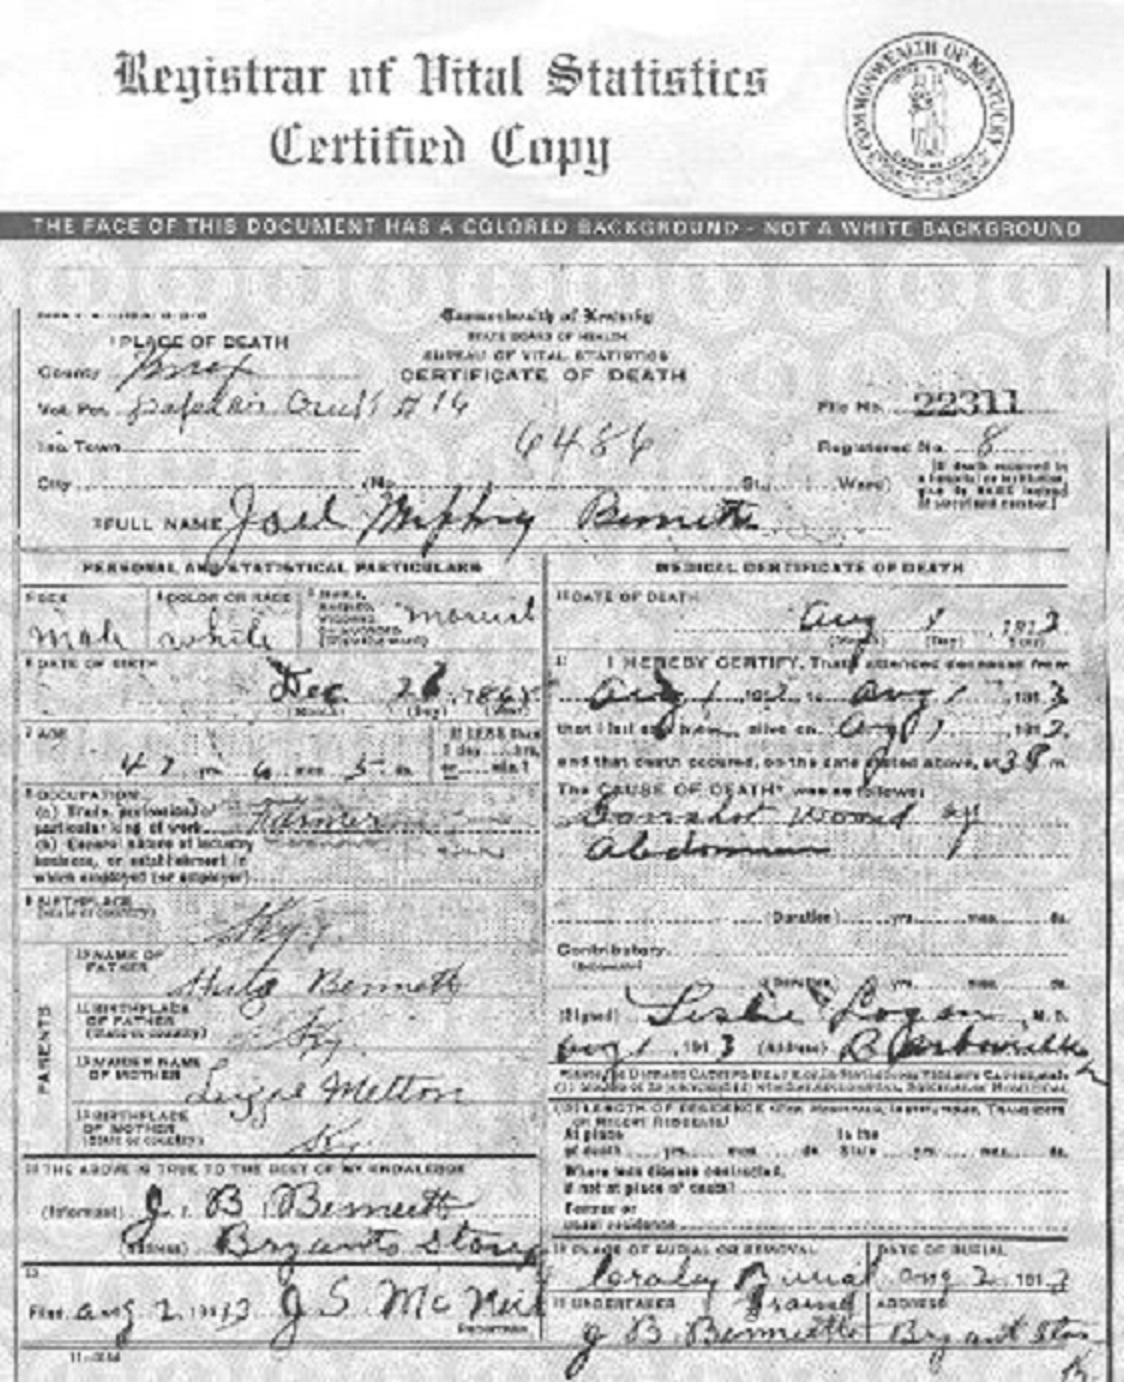 Registrar of Vital Statistics
Certified Copy
COMMONWEALTH OF KENTUCKY
THE FACE OF THIS DOCUMENT HAS A COLORED BACKGROUND - NOT A WHITE BACKGROUND
Commonwealth of Kentucky
STATE BOARD OF HEALTH
BUREAU OF VITAL STATISTICS
CERTIFICATE OF DEATH
1 PLACE OF DEATH
County Knox
Vot. Pct. #16
File No. 22311
Inc. Town
6486
Registered No. 8
City (No. St., Ward)
2 FULL NAME Joel Bennett
PERSONAL AND STATISTICAL PARTICULARS
3 SEX Male
4 COLOR OR RACE white
5 SINGLE, MARRIED, WIDOWED, OR DIVORCED Married
6 DATE OF BIRTH
Dec 26, 1865
(Month) (Day) (Year)
7 AGE
47 yrs 6 mos 5 ds
If LESS than 1 day hrs. or min.?
8 OCCUPATION
(a) Trade, profession or particular kind of work Farmer
(b) General nature of industry business, or establishment in which employed (or employer)
9 BIRTHPLACE
(State or country) Ky.
PARENTS
10 NAME OF FATHER Bennett
11 BIRTHPLACE OF FATHER (State or country) Ky
12 MAIDEN NAME OF MOTHER Melton
13 BIRTHPLACE OF MOTHER (State or country) Ky
14 THE ABOVE IS TRUE TO THE BEST OF MY KNOWLEDGE
(Informant) J. B. Bennett
(Address) Bryants Store
15
Filed Aug 2 1913 J S McNeil
Registrar
11-3184
MEDICAL CERTIFICATE OF DEATH
16 DATE OF DEATH
Aug 1, 1913
(Month) (Day) (Year)
17 I HEREBY CERTIFY, That I attended deceased from
Aug 1, 1913 to Aug 1, 1913
that I last saw him alive on Aug 1, 1913,
and that death occurred, on the date stated above, at m.
The CAUSE OF DEATH* was as follows:
Gunshot Wound of
Abdomen
(Duration) yrs. mos. ds.
Contributory
(Secondary)
(Duration) yrs. mos. ds.
(Signed) Leslie Logan, M. D.
Aug 1, 1913 (Address) Barbourville
18 LENGTH OF RESIDENCE (For Hospitals, Institutions, Transients or Recent Residents)
At place of death yrs. mos. ds. In the State yrs. mos. ds.
Where was disease contracted, if not at place of death?
Former or usual residence
19 PLACE OF BURIAL OR REMOVAL
Burial Ground
DATE OF BURIAL
Aug 2, 1913
20 UNDERTAKER
J B. Bennett
ADDRESS
Bryant Store